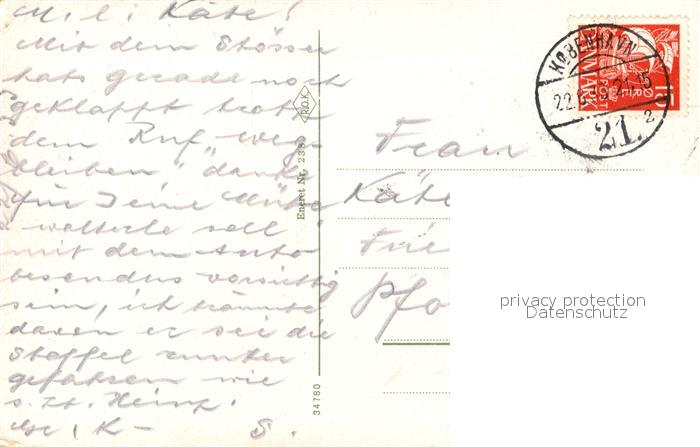 M. l. Käte!
Mit dem Stösser
hats gerade noch
geklappt trotz
dem Ruf "weg-
bleiben" danke
für Deine Mühe
soll
mit dem Auto
besonders vorsichtig
sein, ich träumte
davon er sei die
Staffel runter
gefahren wie
s. Zt. Heinz!
K –
S.
Eneret Nr. 238
R.O.K.
34780
KØBENHAVN
21.15
2
DANMARK
POST
ØRE
15
Frau
Käte
Pfo
privacy protection
Datenschutz